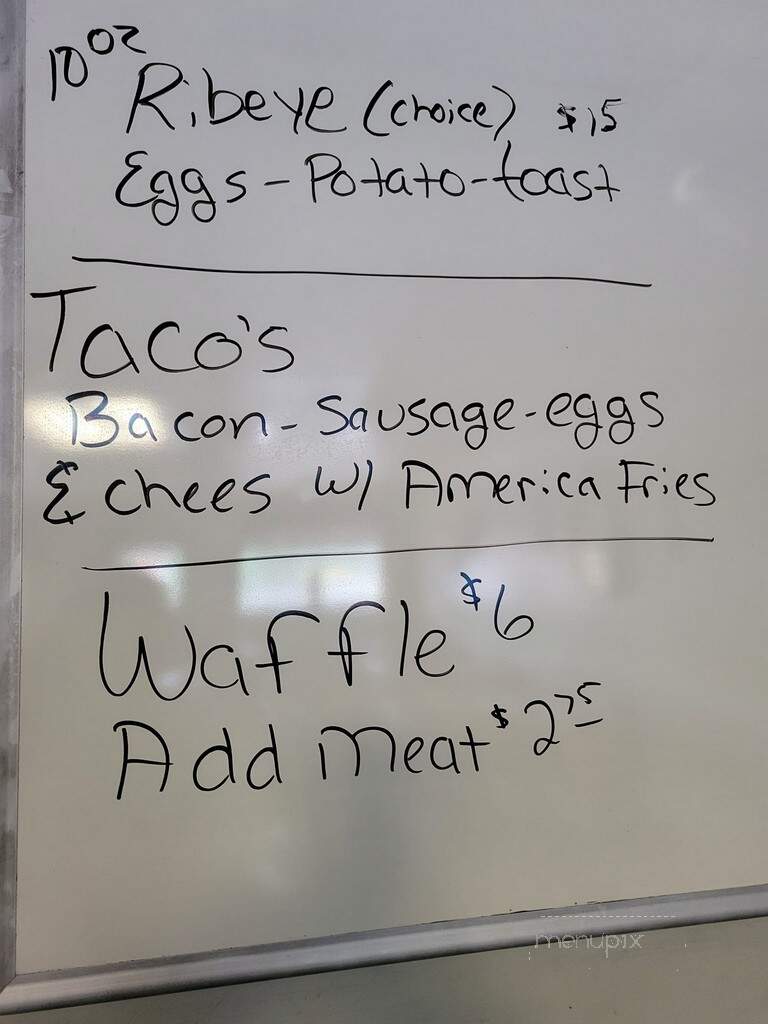 10 oz
Ribeye (choice) $15
Eggs - Potato - toast
Taco's
Bacon - Sausage - eggs
& chees w/ America Fries
Waffle $6
Add meat $2 75
menupix